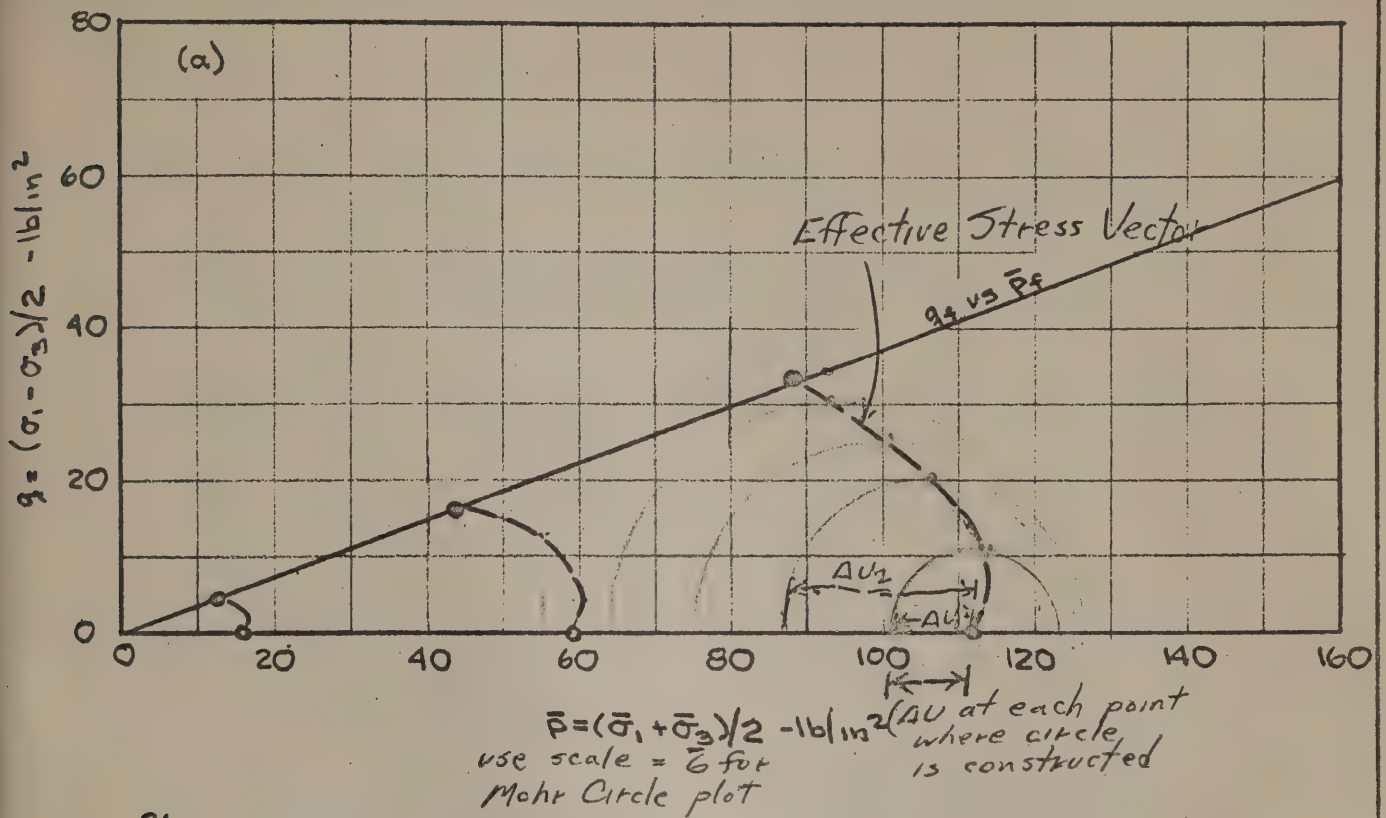 80
(a)
60
40
20
0
q = (σ₁ - σ₃)/2 - lb/in²
Effective Stress Vector
qf vs p̄f
ΔU₂
ΔU
0 20 40 60 80 100 120 140 160
p̄ = (σ̄₁ + σ̄₃)/2 - lb/in²
(ΔU at each point
where circle
is constructed
use scale = σ̄ for
Mohr Circle plot